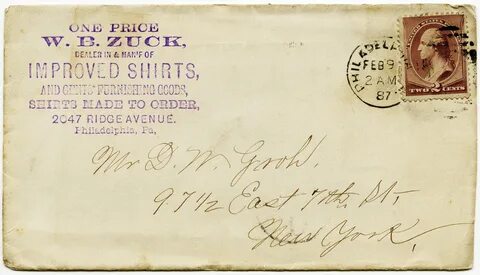 ONE PRICE
W. B. ZUCK,
DEALER IN & MAN'F OF
IMPROVED SHIRTS,
AND GENTS' FURNISHING GOODS,
SHIRTS MADE TO ORDER,
2047 RIDGE AVENUE.
Philadelphia, Pa,
PHILADEL
FEB 9
2 AM
87
TWO 2 CENTS
Mr D. W.
97½ East 7th St.
New York.